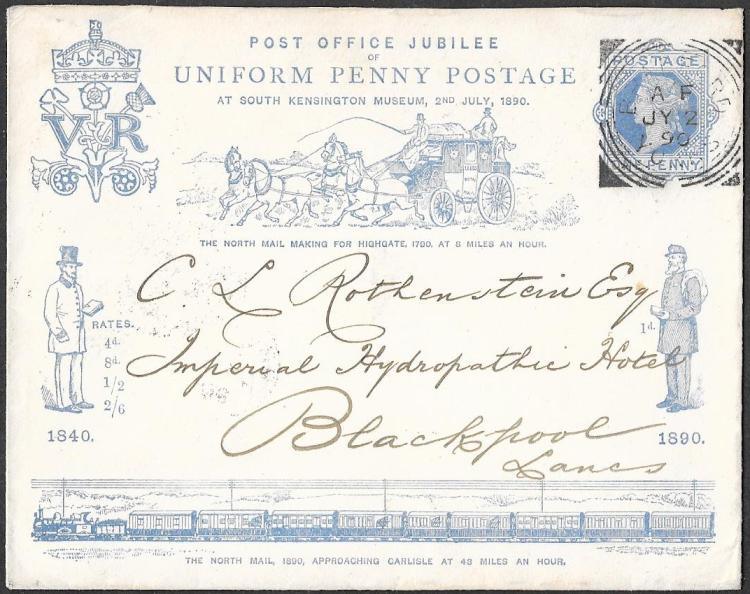 POST OFFICE JUBILEE
OF
UNIFORM PENNY POSTAGE
AT SOUTH KENSINGTON MUSEUM, 2ND JULY, 1890.
V R
POSTAGE
PENNY
A F
JY 2
90
THE NORTH MAIL MAKING FOR HIGHGATE, 1790, AT 8 MILES AN HOUR.
C L Rothenstein Esq
Imperial Hydropathic Hotel
Blackpool
Lancs
RATES.
4d.
8d.
1/2
2/6
1840.
1d.
1890.
THE NORTH MAIL, 1890, APPROACHING CARLISLE AT 48 MILES AN HOUR.